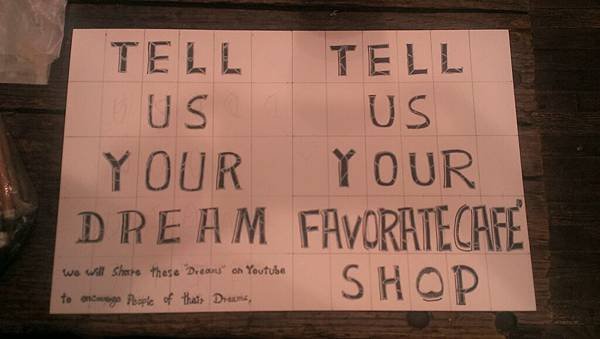 TELL
US
YOUR
DREAM
we will share these "Dreams" on Youtube
to encourage People of their Dreams,
TELL
US
YOUR
FAVORATE CAFE"
SHOP